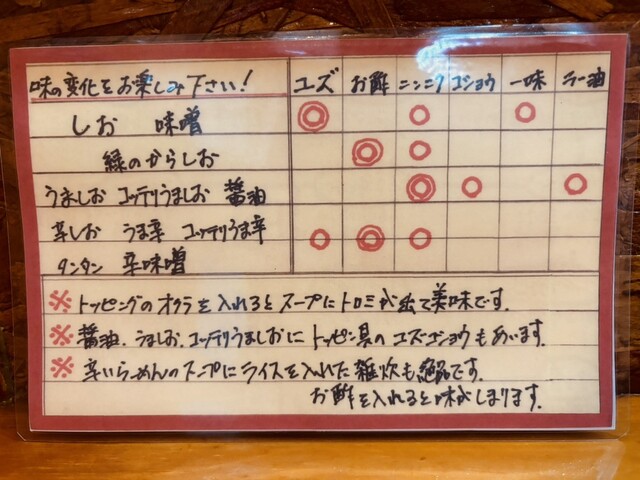 味の変化をお楽しみ下さい! ユズ お酢 ニンニク コショウ 一味 ラー油
しお 味噌 ◎ ○ ○
緑のからしお ◎ ○
うましお コッテリうましお 醤油 ◎ ○ ○
辛しお うま辛 コッテリうま辛 ○ ◎ ○
タンタン 辛味噌
※トッピングのオクラを入れるとスープにトロミが出て美味です.
※醤油.うましお.コッテリうましおにトッピン具のユズゴショウもあいます.
※辛いらーめんのスープにライスを入れた雑炊も絶品です.
お酢を入れると味がしまります.